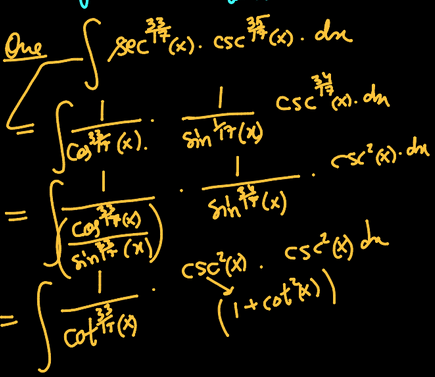 One ∫ sec^{33/17}(x) · csc^{35/17}(x) · dx
= ∫ 1/cos^{33/17}(x) · 1/sin^{1/17}(x) csc^{34/17}(x) · dx
= ∫ 1/(cos^{33/17}(x)/sin^{33/17}(x)) · 1/sin^{34/17}(x) · csc²(x) · dx
= ∫ 1/cot^{33/17}(x) · csc²(x) · csc²(x) dx
(1 + cot²(x))